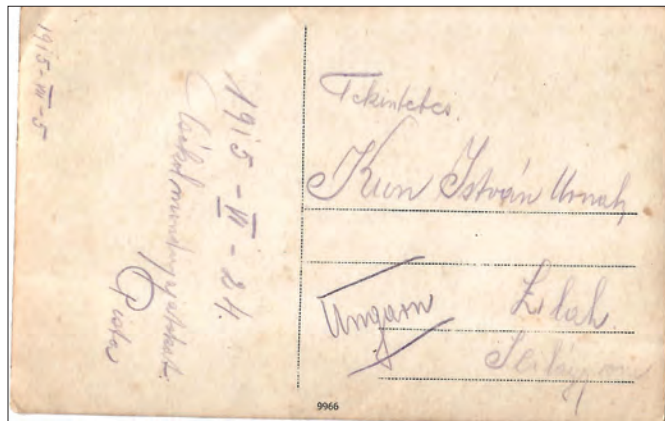 1915-VII-5
1915-VI-24.
Csókol mindnyájatokat:
Pista
Tekintetes
Kun István Urnak
Ungarn
Zilah
9966